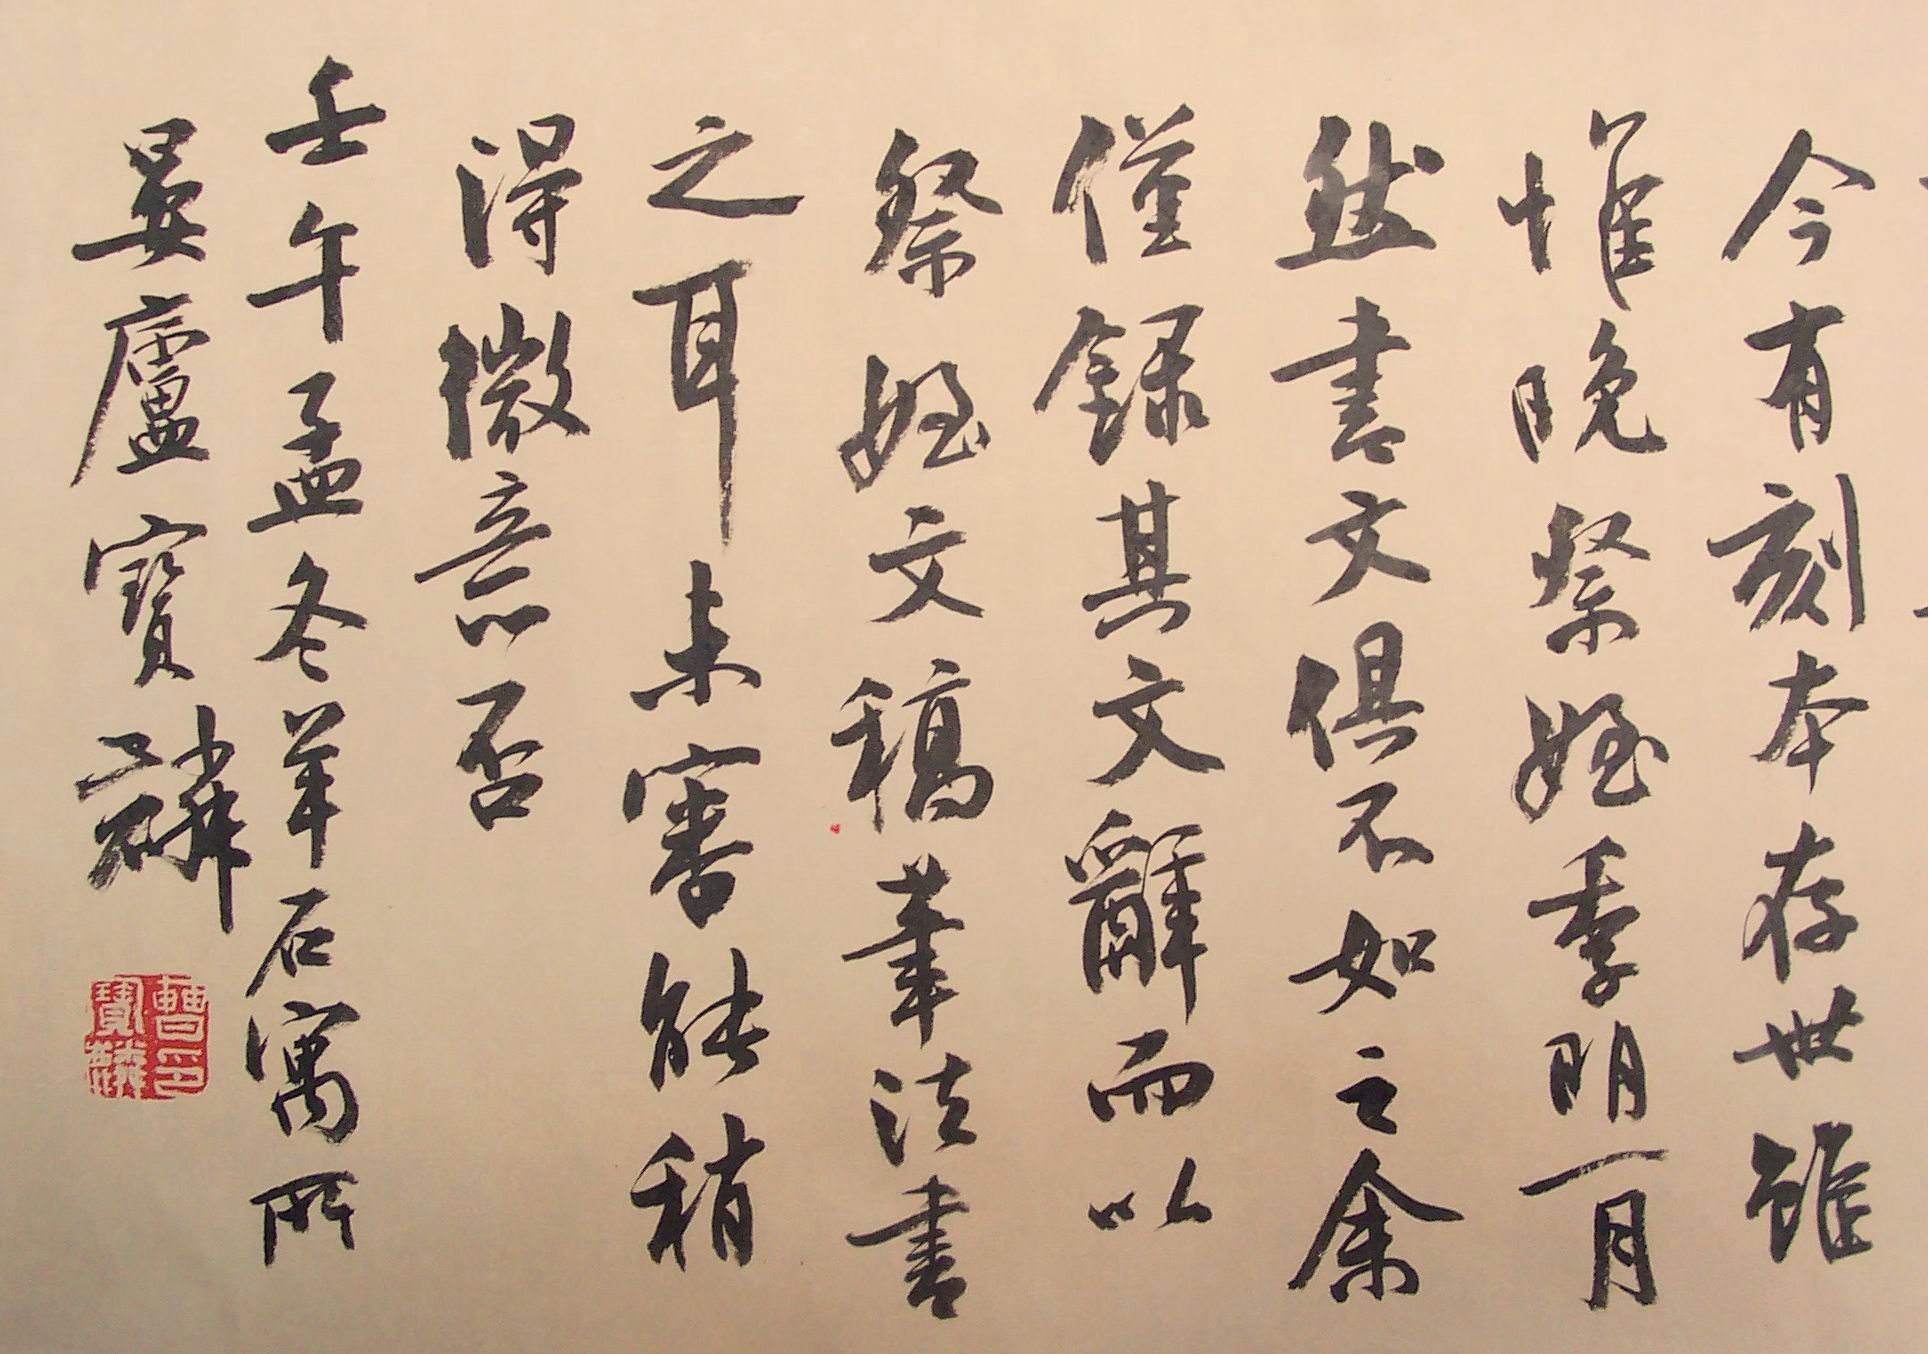 今有刻本存世雖
惟晚祭姪季明一月
然書文俱不如之余
僅録其文辭而以
祭姪文稿筆法書
之耳未審能稍
得微意否
壬午孟冬羊石寓所
晏廬寶麟
曹寶麟印